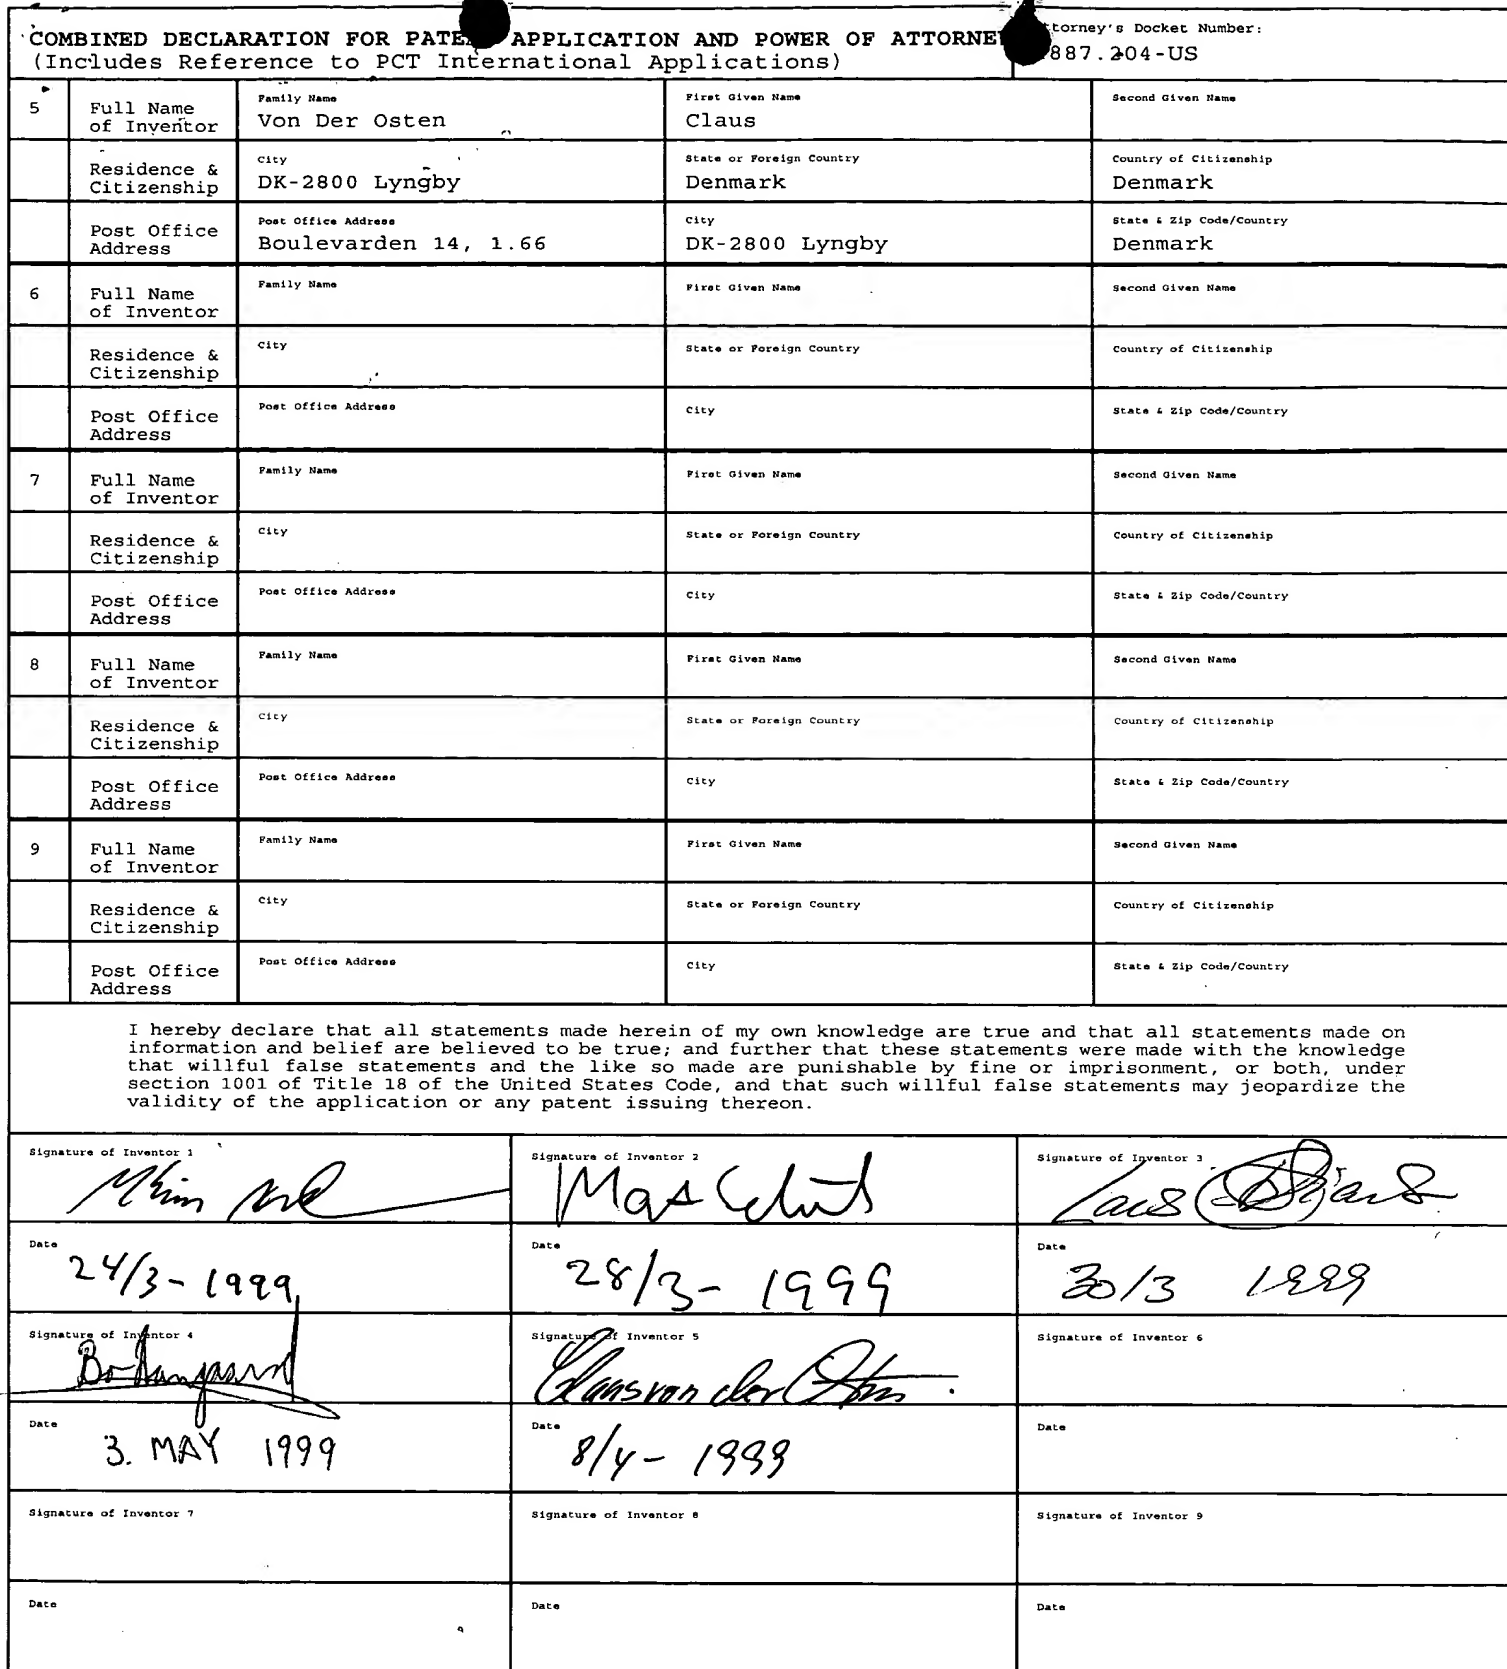 COMBINED DECLARATION FOR PATE APPLICATION AND POWER OF ATTORNE
(Includes Reference to PCT International Applications)
ttorney's Docket Number:
887.204-US
5
Full Name
of Inventor
Family Name
Von Der Osten
First Given Name
Claus
Second Given Name
Residence &
Citizenship
City
DK-2800 Lyngby
State or Foreign Country
Denmark
Country of Citizenship
Denmark
Post Office
Address
Post Office Address
Boulevarden 14, 1.66
City
DK-2800 Lyngby
State & Zip Code/Country
Denmark
6
Full Name
of Inventor
Family Name
First Given Name
Second Given Name
Residence &
Citizenship
City
State or Foreign Country
Country of Citizenship
Post Office
Address
Post Office Address
City
State & Zip Code/Country
7
Full Name
of Inventor
Family Name
First Given Name
Second Given Name
Residence &
Citizenship
City
State or Foreign Country
Country of Citizenship
Post Office
Address
Post Office Address
City
State & Zip Code/Country
8
Full Name
of Inventor
Family Name
First Given Name
Second Given Name
Residence &
Citizenship
City
State or Foreign Country
Country of Citizenship
Post Office
Address
Post Office Address
City
State & Zip Code/Country
9
Full Name
of Inventor
Family Name
First Given Name
Second Given Name
Residence &
Citizenship
City
State or Foreign Country
Country of Citizenship
Post Office
Address
Post Office Address
City
State & Zip Code/Country
I hereby declare that all statements made herein of my own knowledge are true and that all statements made on
information and belief are believed to be true; and further that these statements were made with the knowledge
that willful false statements and the like so made are punishable by fine or imprisonment, or both, under
section 1001 of Title 18 of the United States Code, and that such willful false statements may jeopardize the
validity of the application or any patent issuing thereon.
Signature of Inventor 1
Signature of Inventor 2
Signature of Inventor 3
Date
24/3-1999
Date
28/3-1999
Date
30/3 1999
Signature of Inventor 4
Signature of Inventor 5
Claus von der Osten
Signature of Inventor 6
Date
3. MAY 1999
Date
8/4-1999
Date
Signature of Inventor 7
Signature of Inventor 8
Signature of Inventor 9
Date
Date
Date